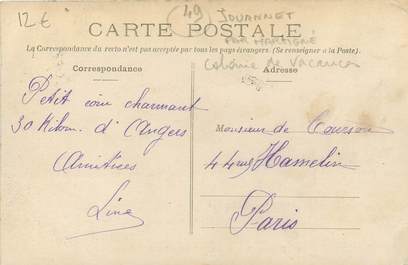 12€
(49) JOUANNET
PAR MARTIGNÉ
CARTE POSTALE
La Correspondance du recto n'est pas acceptée par tous les pays étrangers. (Se renseigner à la Poste).
colonie de vacances
Correspondance
Adresse
Petit coin charmant
30 Kilom. d'Angers
Amitiés
Line
Monsieur de Courson
44 rue Hamelin
Paris